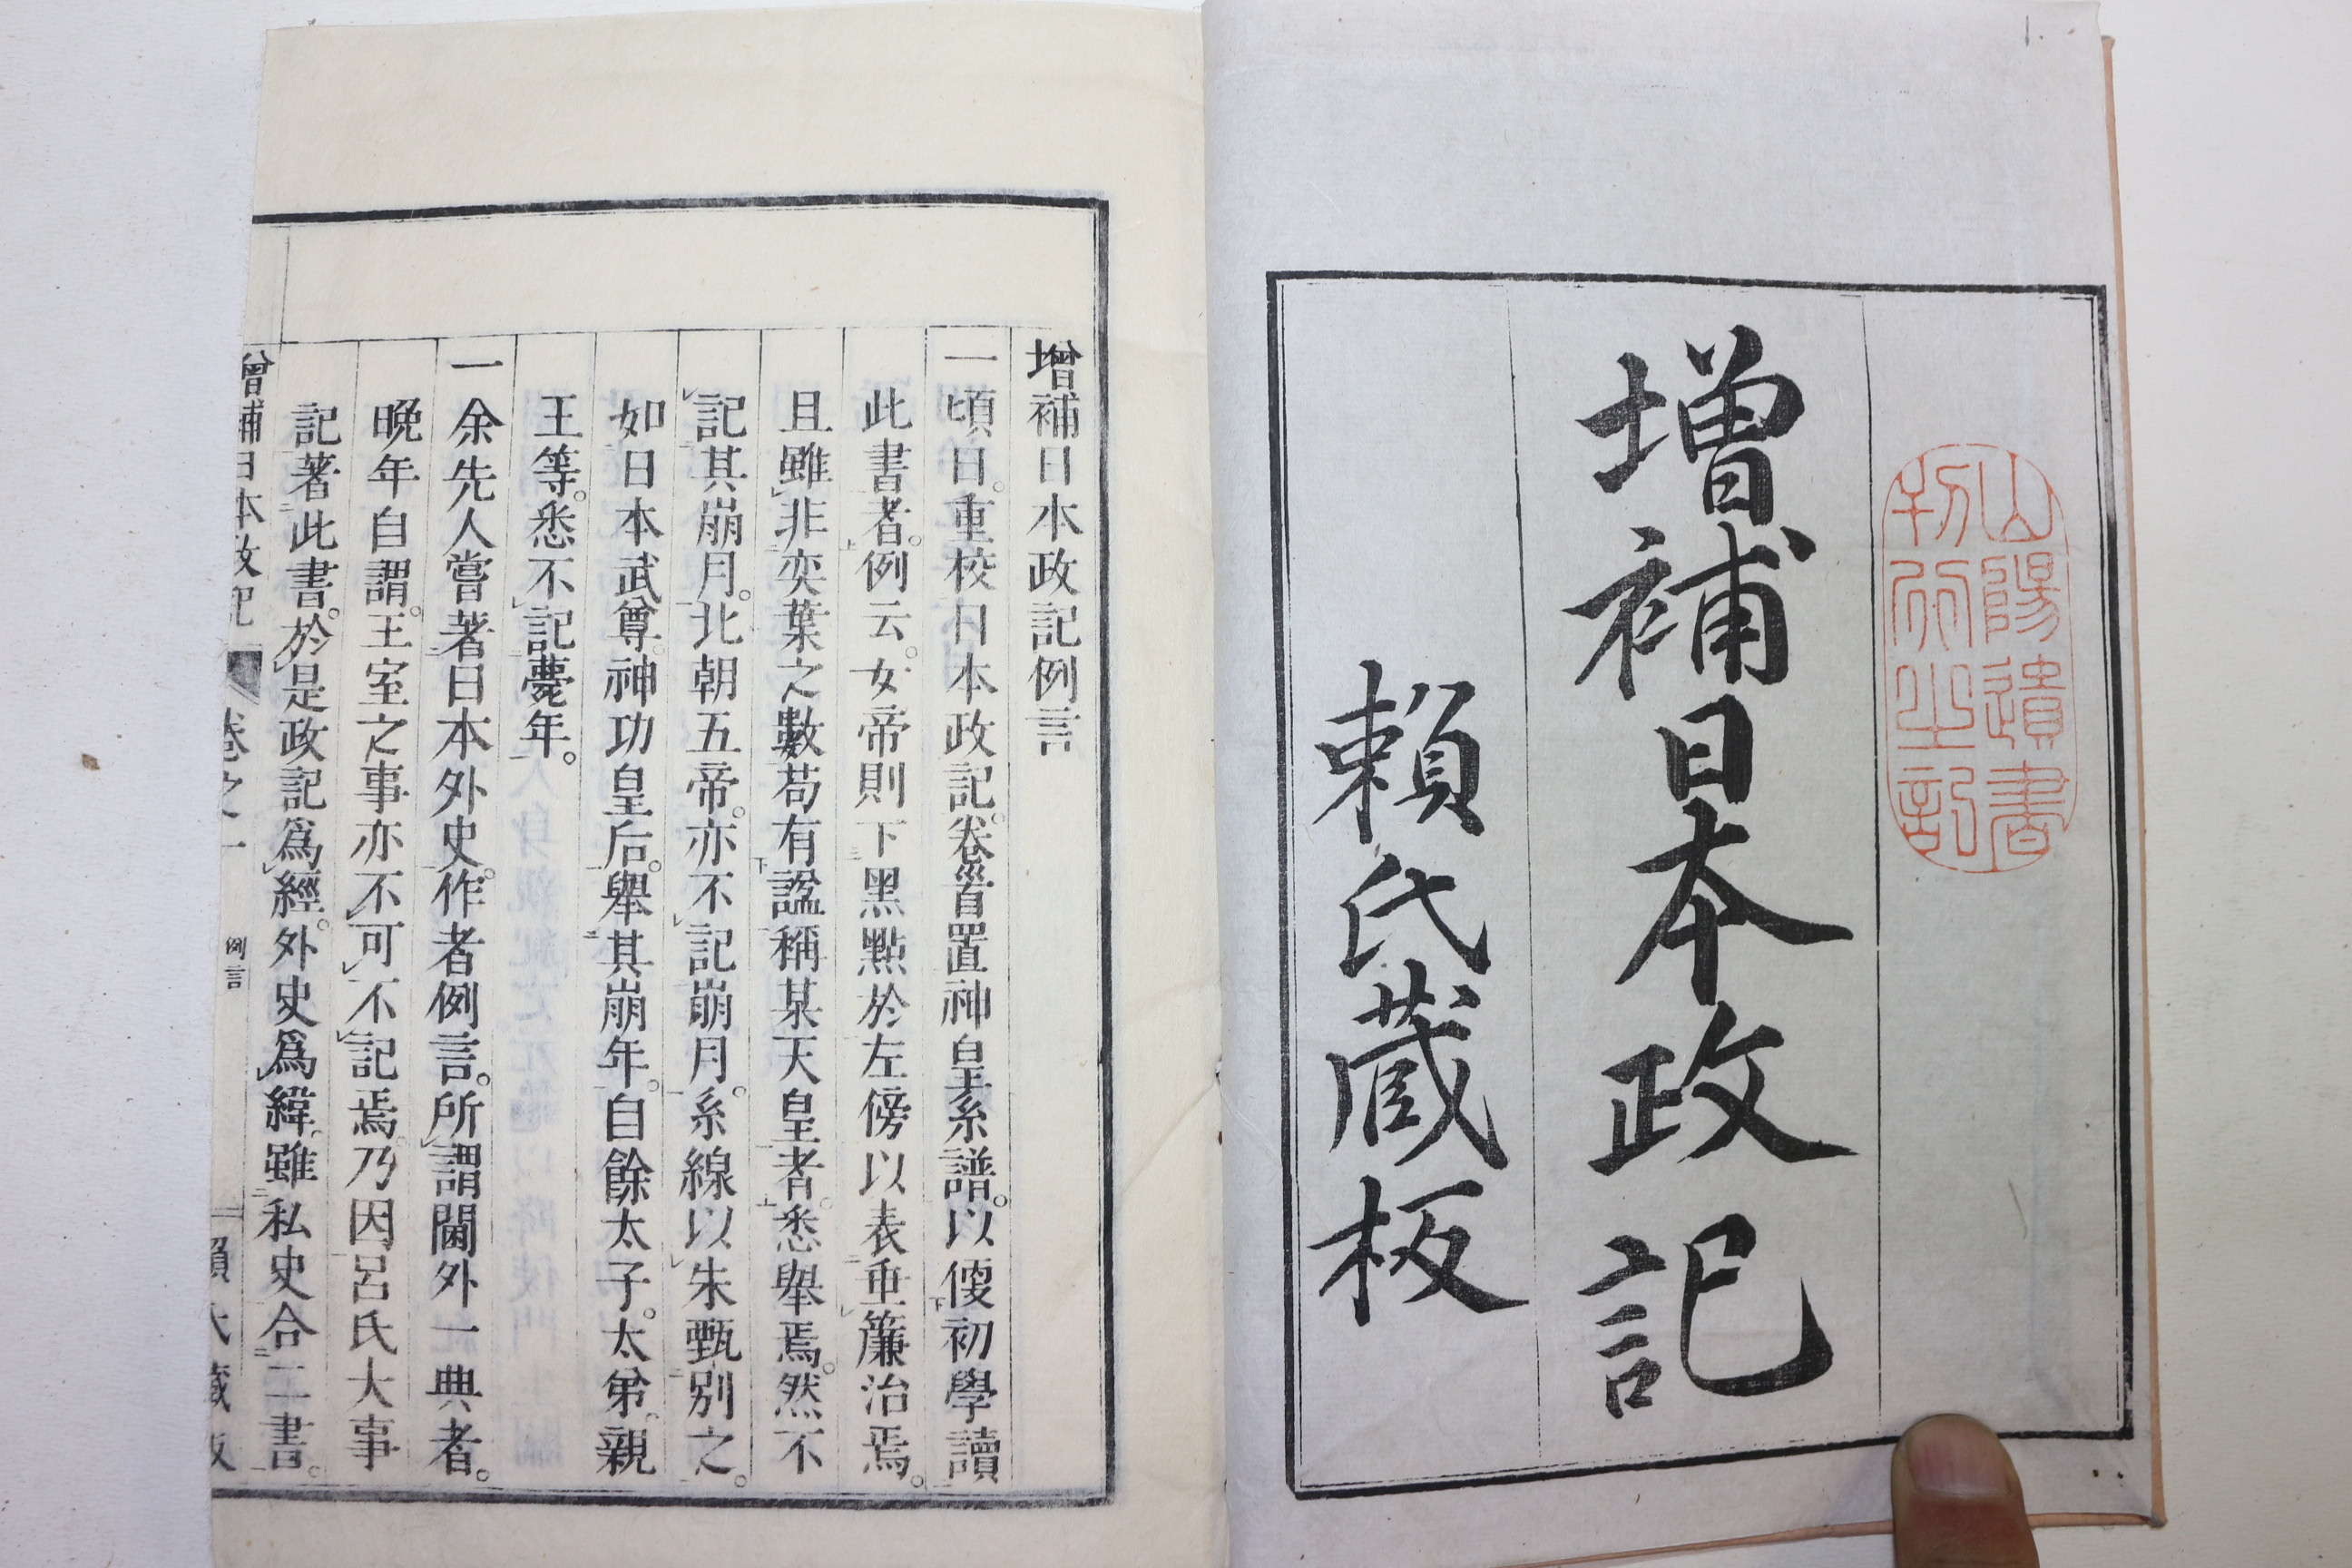 山陽遺書
刊行之記
增補日本政記
賴氏蔵板
增補日本政記例言
一頃日。重校日本政記。卷首置神皇系譜。以便初學讀
此書者。例云。女帝則下黑點於左傍以表垂簾治焉。
且雖非奕葉之數苟有謚稱某天皇者。悉舉焉。然不
記其崩月。北朝五帝。亦不記崩月。系線以朱甄別之。
如日本武尊。神功皇后。舉其崩年。自餘太子。太弟。親
王等。悉不記薨年。
一余先人嘗著日本外史。作者例言。所謂閫外一典者。
晚年自謂。王室之事亦不可不記焉。乃因呂氏大事
記著此書。於是政記爲經。外史爲緯。雖私史合二書。
增補日本政記 卷之一 例言 賴氏藏板